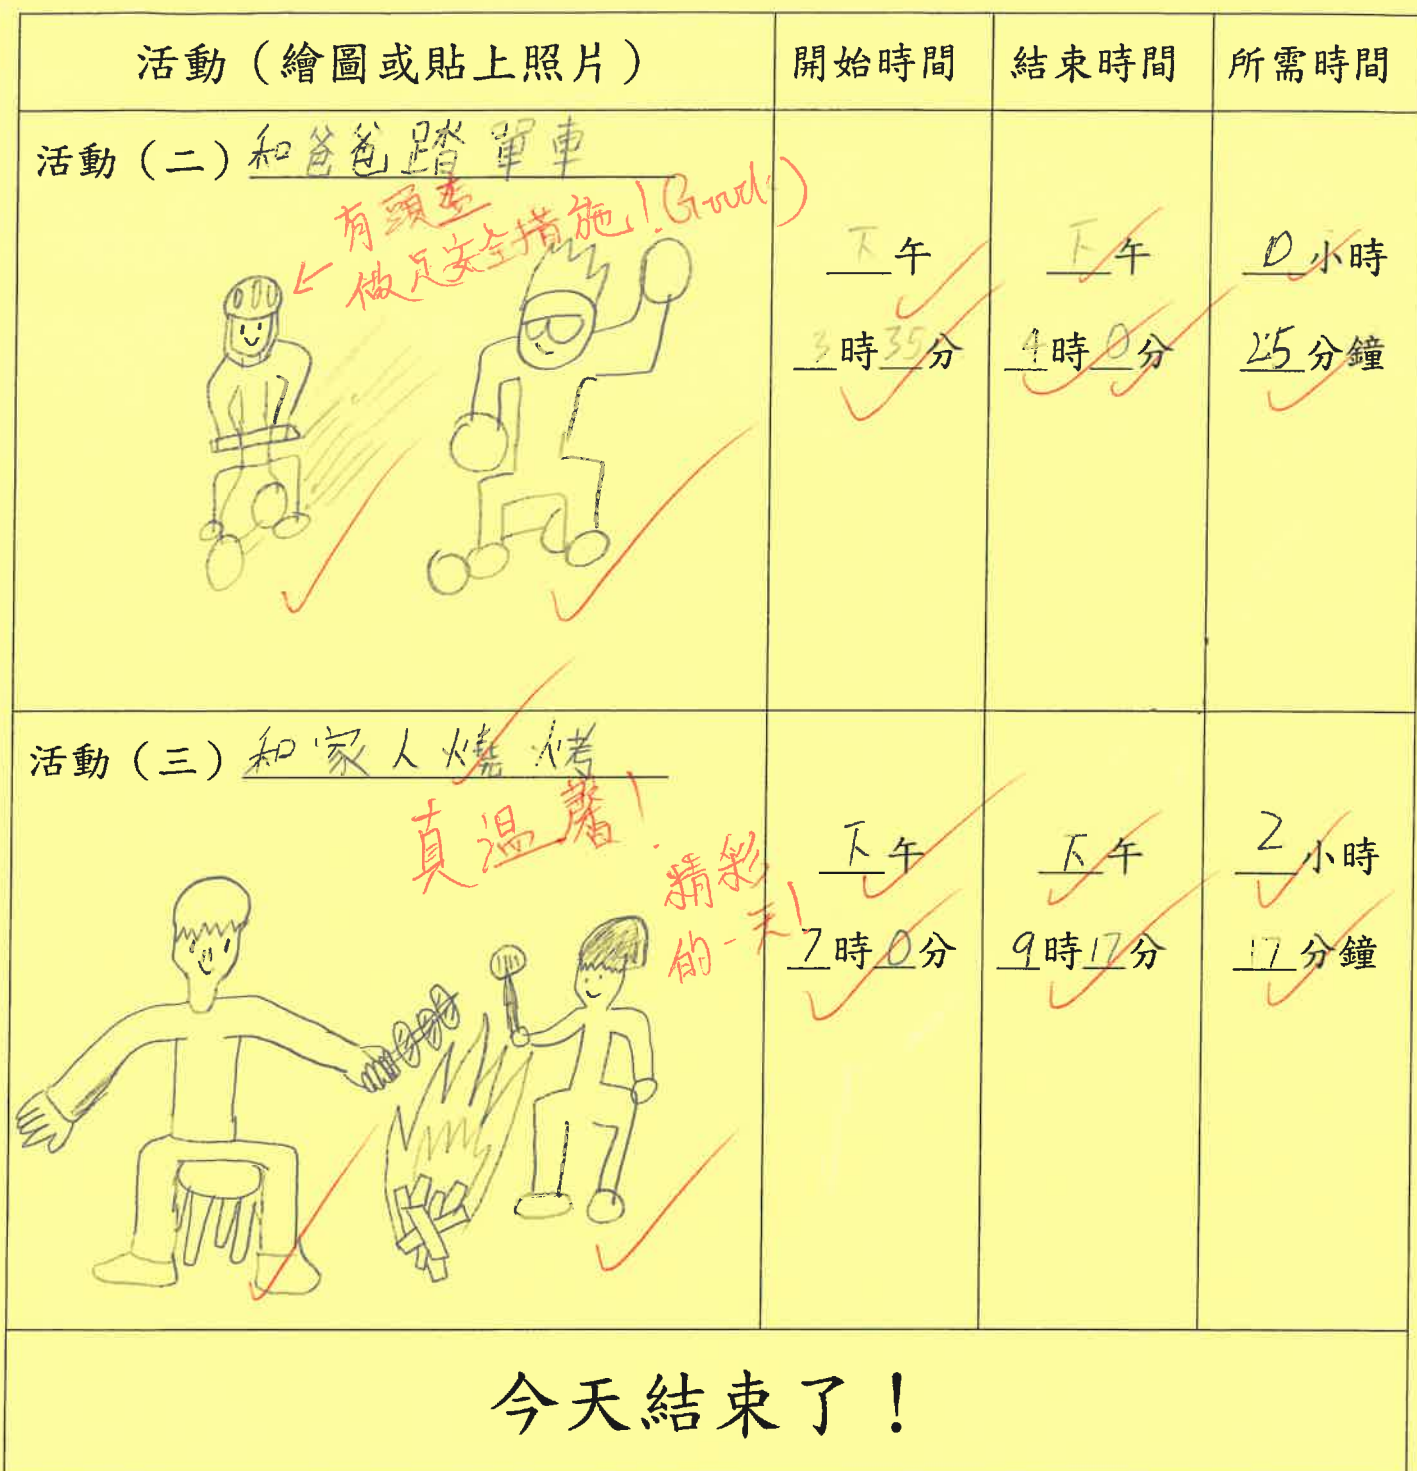 活動（繪圖或貼上照片） 開始時間 結束時間 所需時間
活動（二）和爸爸踏單車
有頭盔
做足安全措施！(Good!)
下午 下午 0小時
3時35分 4時0分 25分鐘
活動（三）和家人燒烤
真温馨！
精彩
的一天！
下午 下午 2小時
7時0分 9時17分 17分鐘
今天結束了！